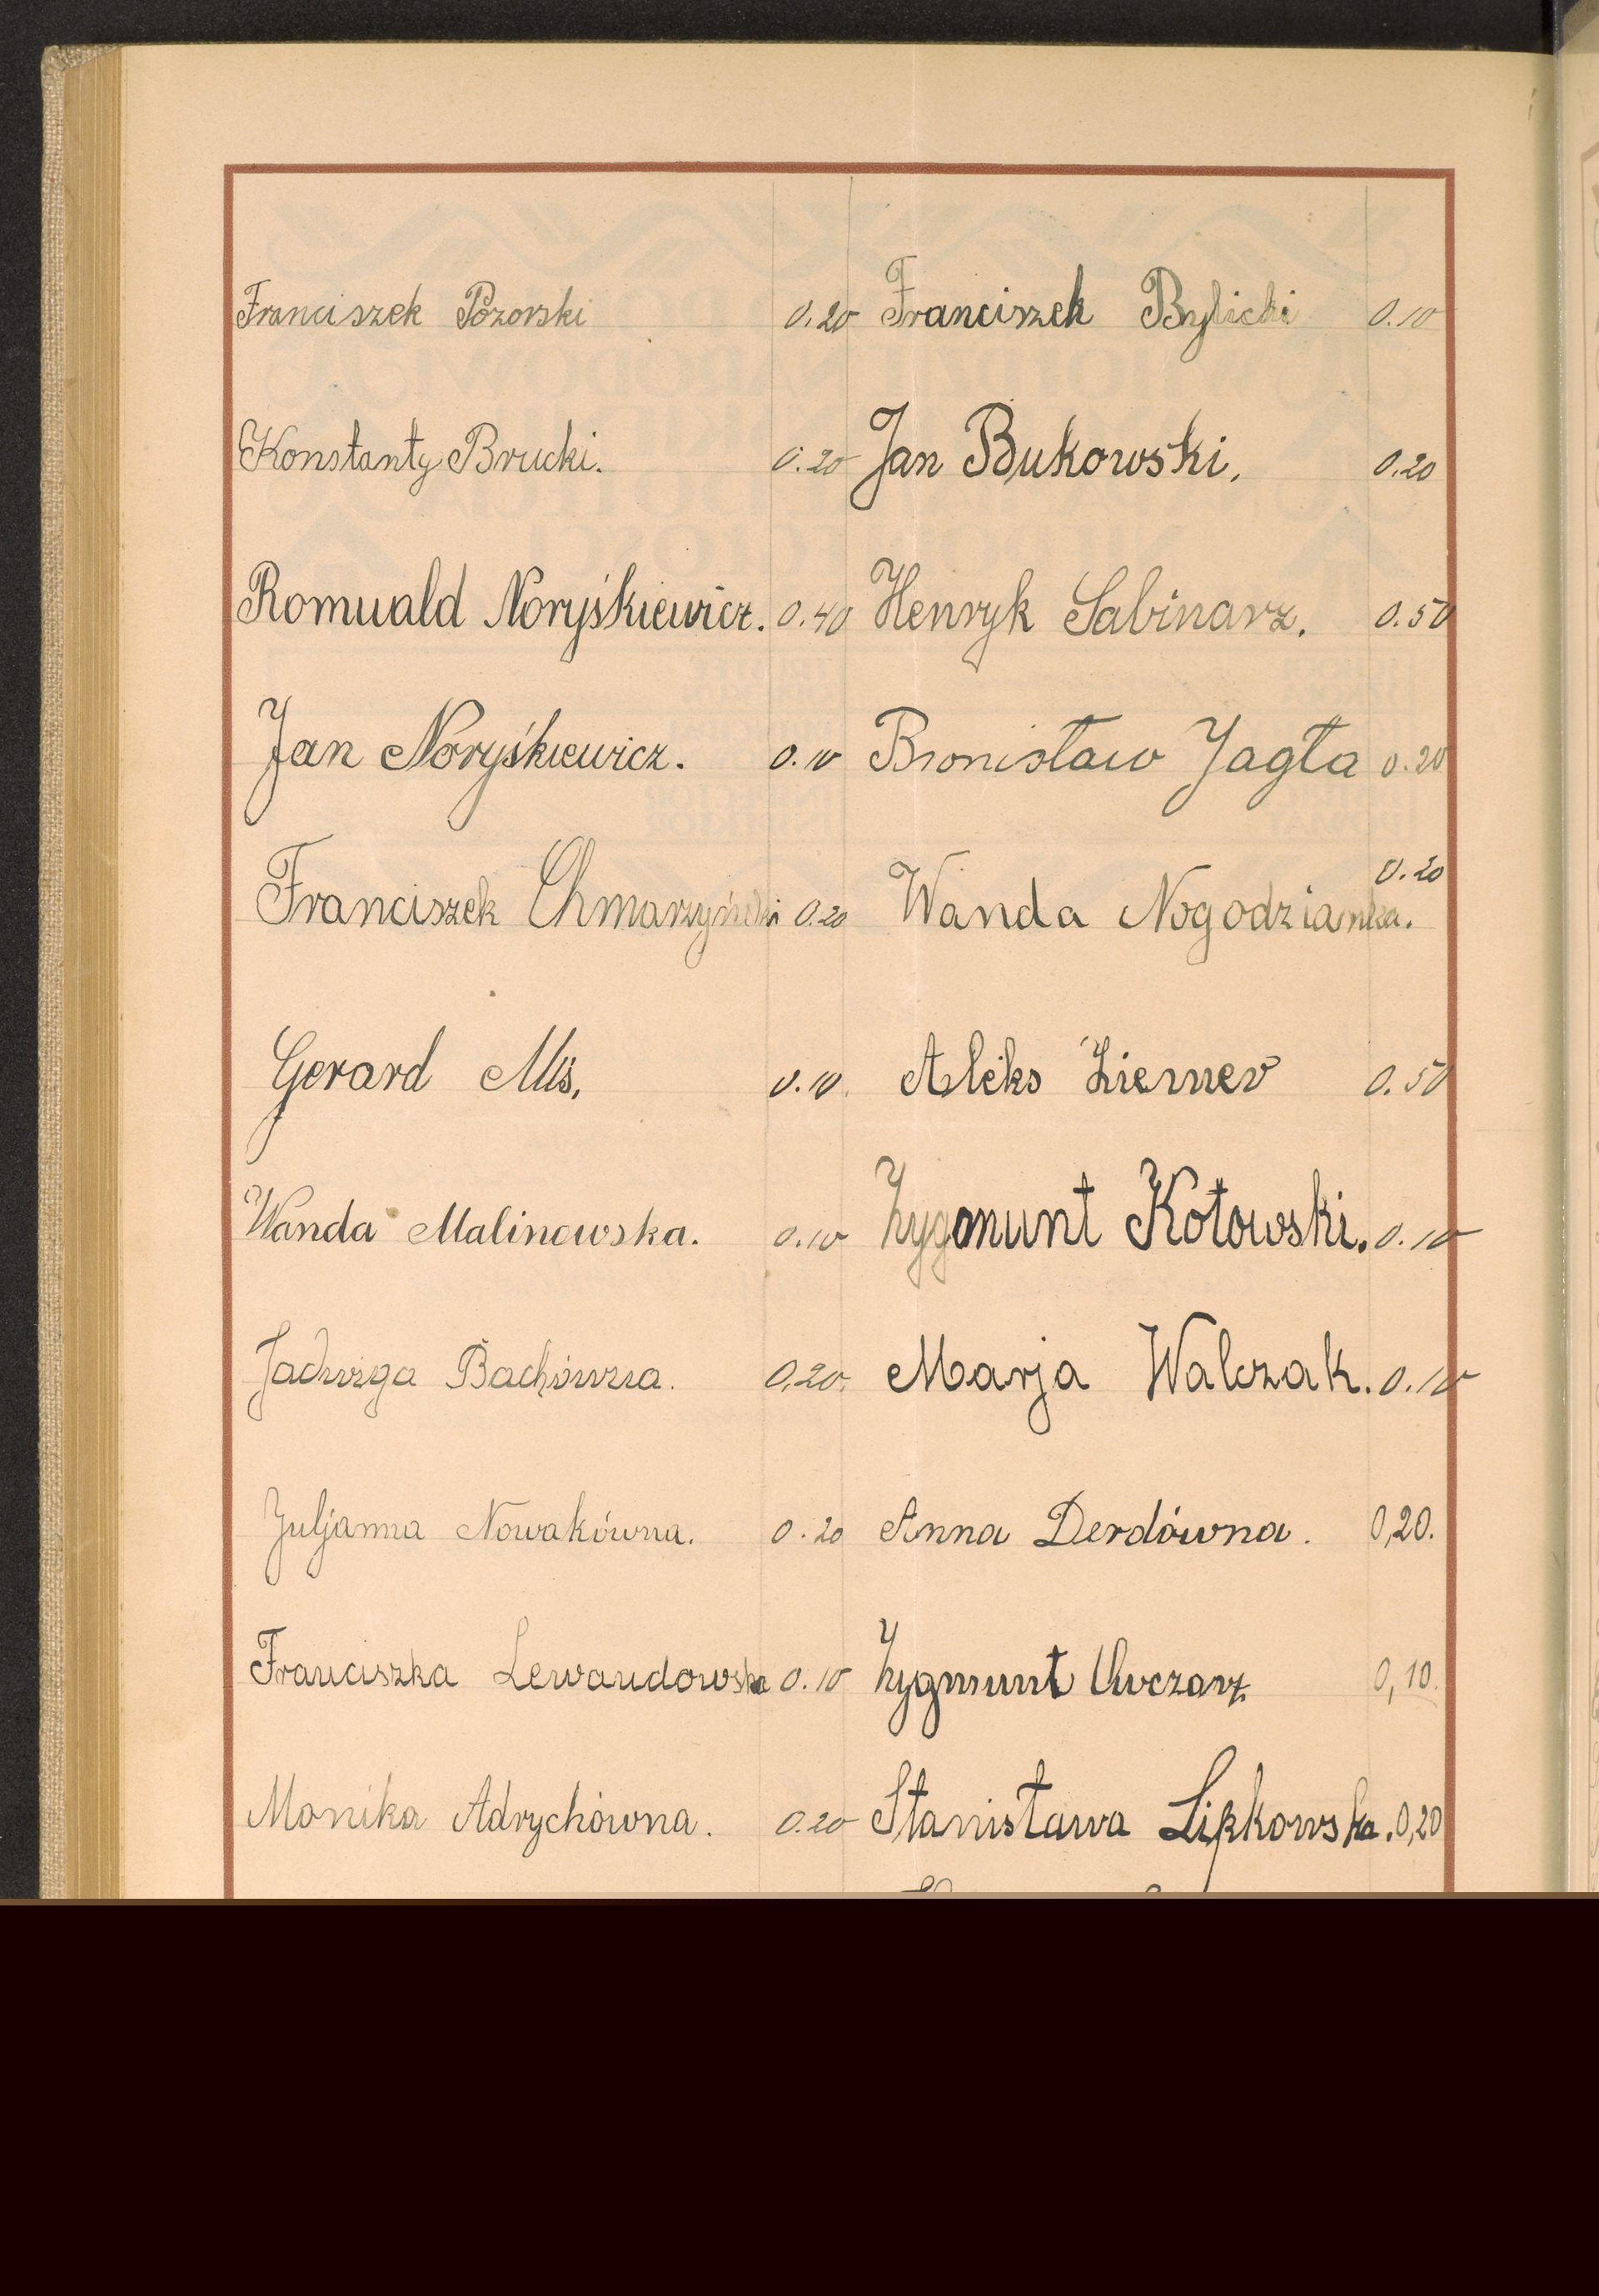 Franciszek Pozorski 0.20 Franciszek Bylicki 0.10
Konstanty Brucki. 0.20 Jan Bukowski. 0.20
Romuald Noryśkiewicz. 0.40 Henryk Sabinarz. 0.50
Jan Noryśkiewicz. 0.10 Bronisław Jagła 0.20
Franciszek Chmarzyński 0.20 Wanda Nogodzianka. 0.20
Gerard Mis. 0.10 Aleks 0.50
Wanda Malinowska. 0.10 Zygmunt Kotowski. 0.10
Jadwiga Bachówna. 0,20. Marja Walczak. 0.10
Juljanna Nowakówna. 0.20 Anna Derdówna. 0,20.
Franciszka Lewandowska 0.10 Zygmunt Owczarz 0,10.
Monika Adrychówna. 0.20 Stanisława Lipkowska. 0,20